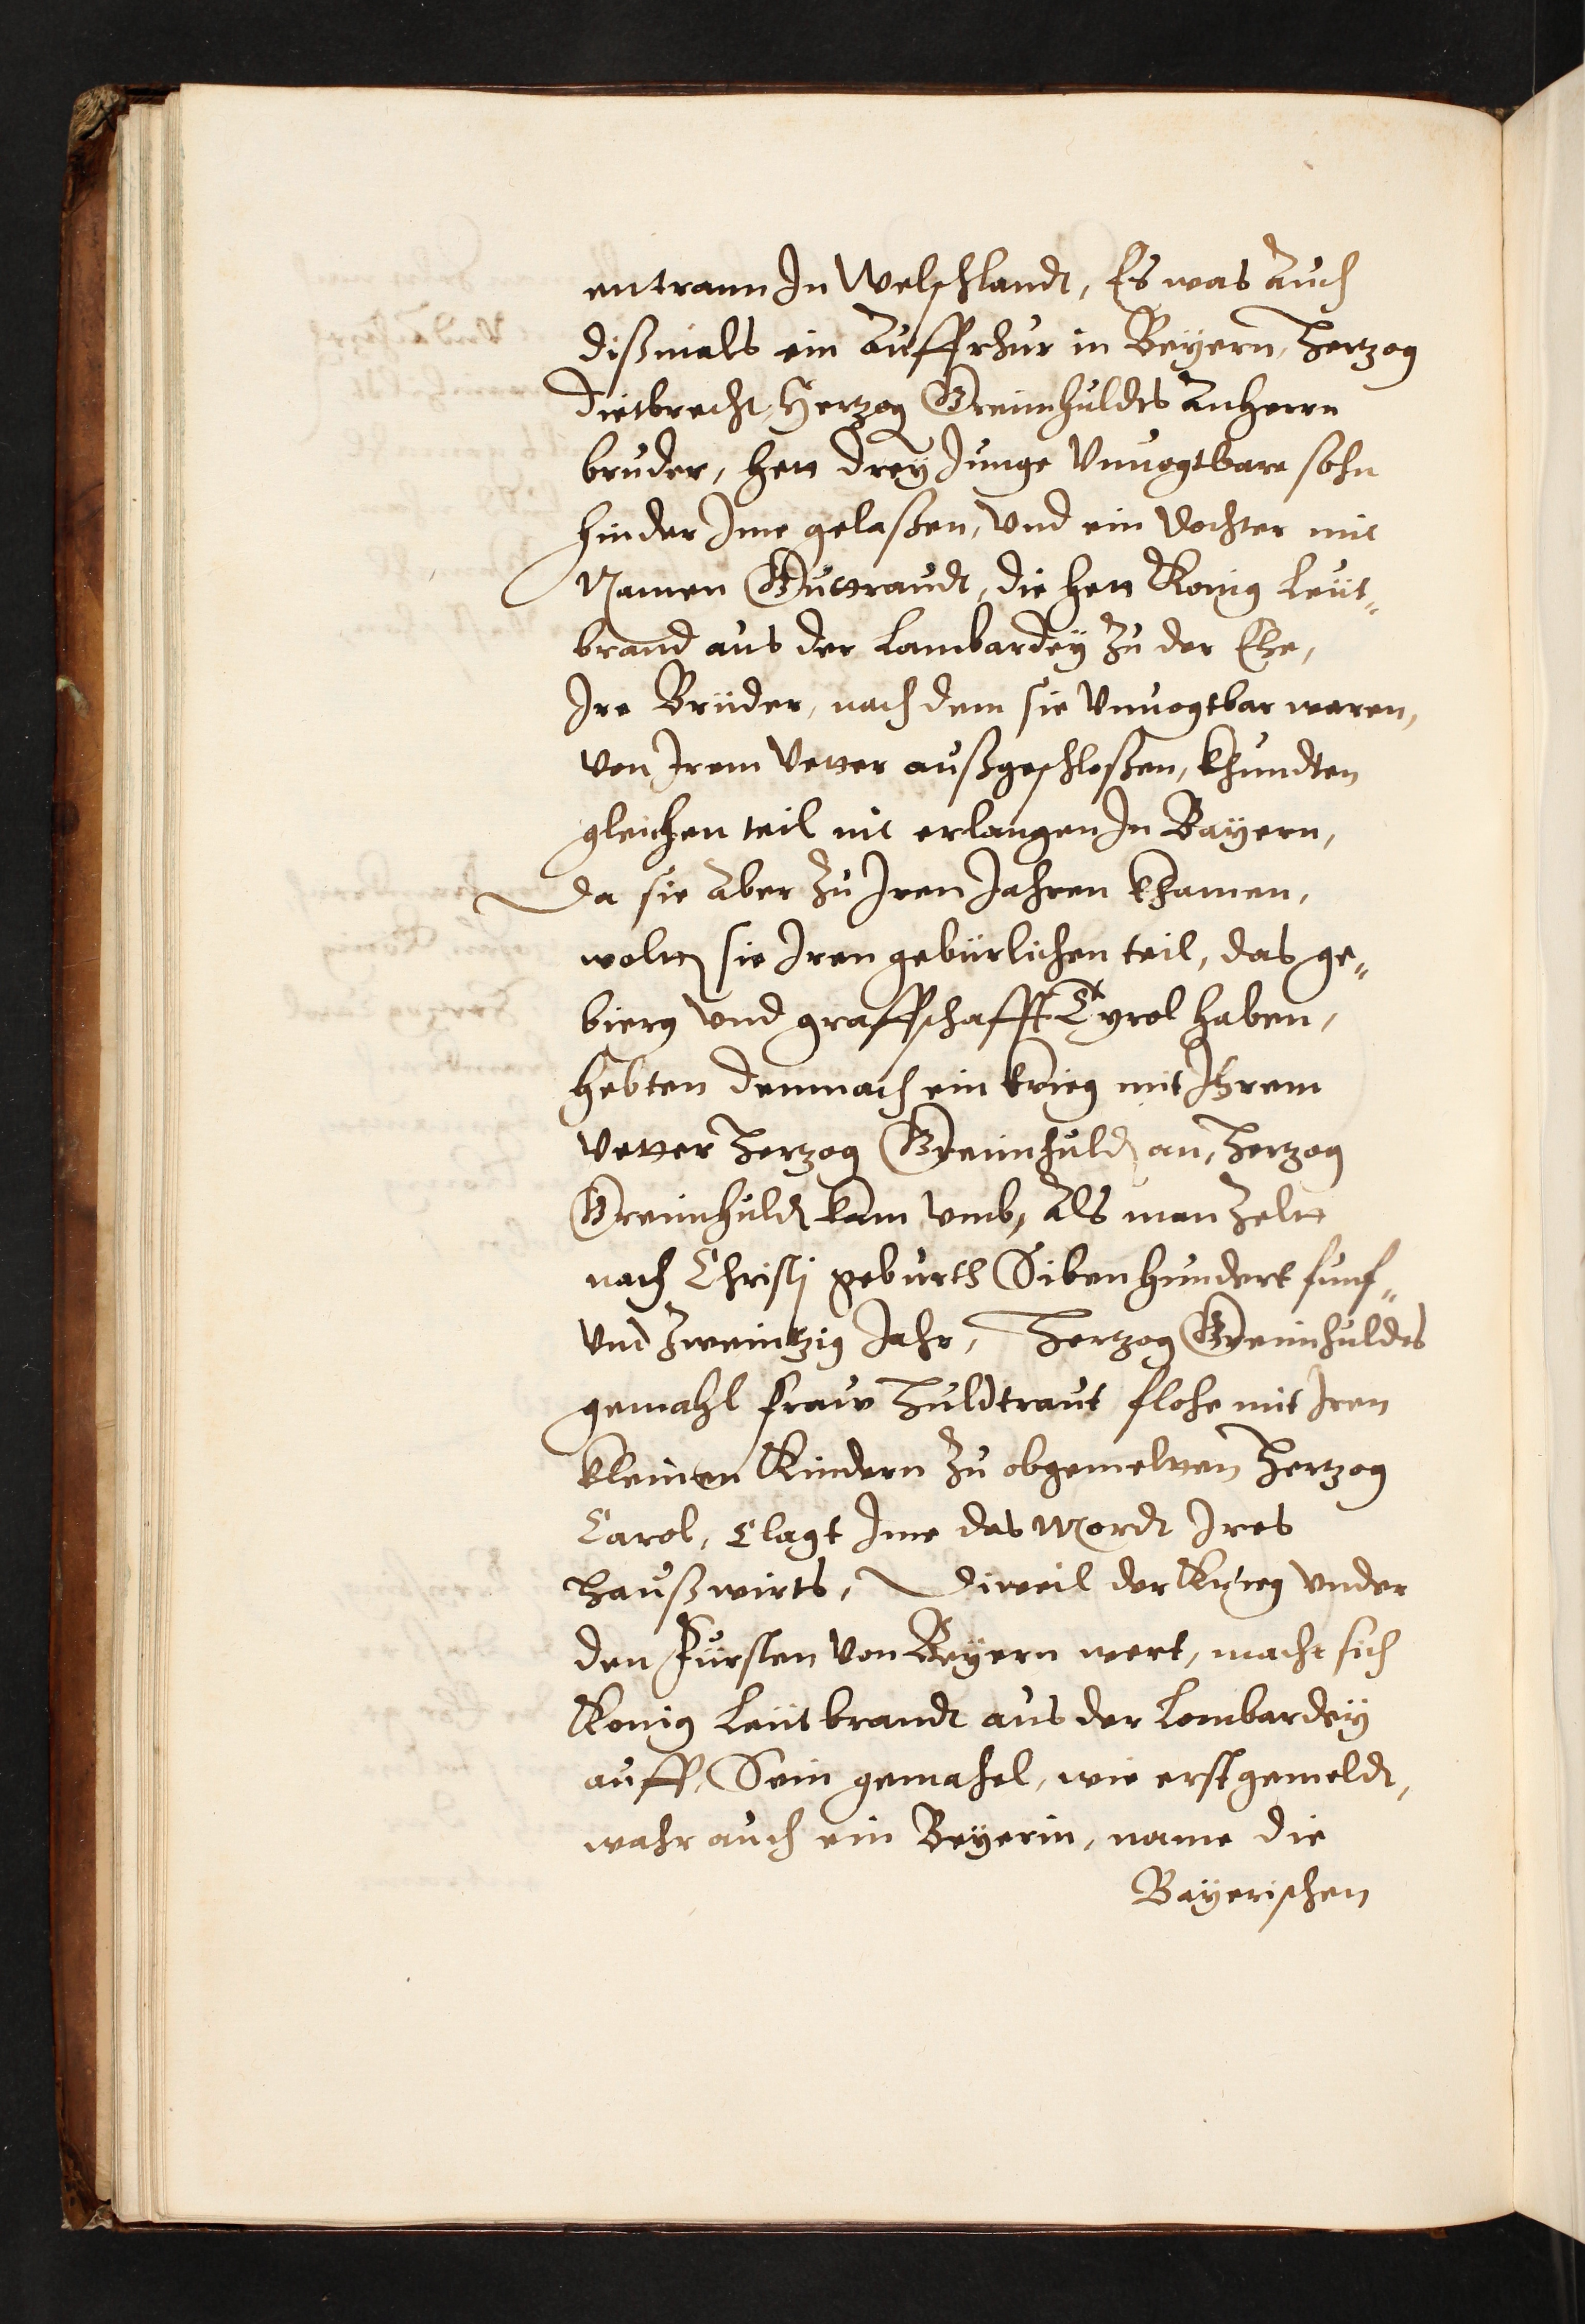 entrann In Welschlandt, Es was Auch
dißmals ein Auffrhur in Beyern, Hertzog
Dietbrecht, Hertzog Greimhuldts Anherrn
bruder, hett drey Junge Vnuogtbare sohn
hinder Ime gelaßen, Vnd ein dochter mit
Namen Guttraudt, die hett König Leut„
brand aus der Lambardey Zu der Ehe,
Ire Brüder, nach dem sie Vnuogtbar waren,
Von Irem Vetter außgeschloßen, khundten
gleichen teil nit erlangen In Bayern,
Da sie Aber Zu Iren Jahren khamen,
wolten sie Iren gebürlichen teil, das ge„
bierg Vnd graffschafft Tyrol haben,
hebten demnach ein krieg mit Ihrem
Vetter Hertzog Greimhuld an, Hertzog
Greimhuld kam Vmb, Als man Zeltt
nach Christj geburth Siben hundert funf„
Vnd Zweintzig Jahr, Hertzog Greimhuldts
gemahl Fraw Huldtraut flohe mit Iren
kleinen Kindern Zu obgemelten Hertzog
Carol, Clagt Ime das Mordt Ires
Haußwirts, Dieweil der Krieg Vnder
den Fürsten Von Beyern wert, macht sich
König Leutbrandt aus der Lombardey
auff, Sein gemahel, wie erst gemeldt,
wahr auch ein Beyerin, name die
Bayerischen